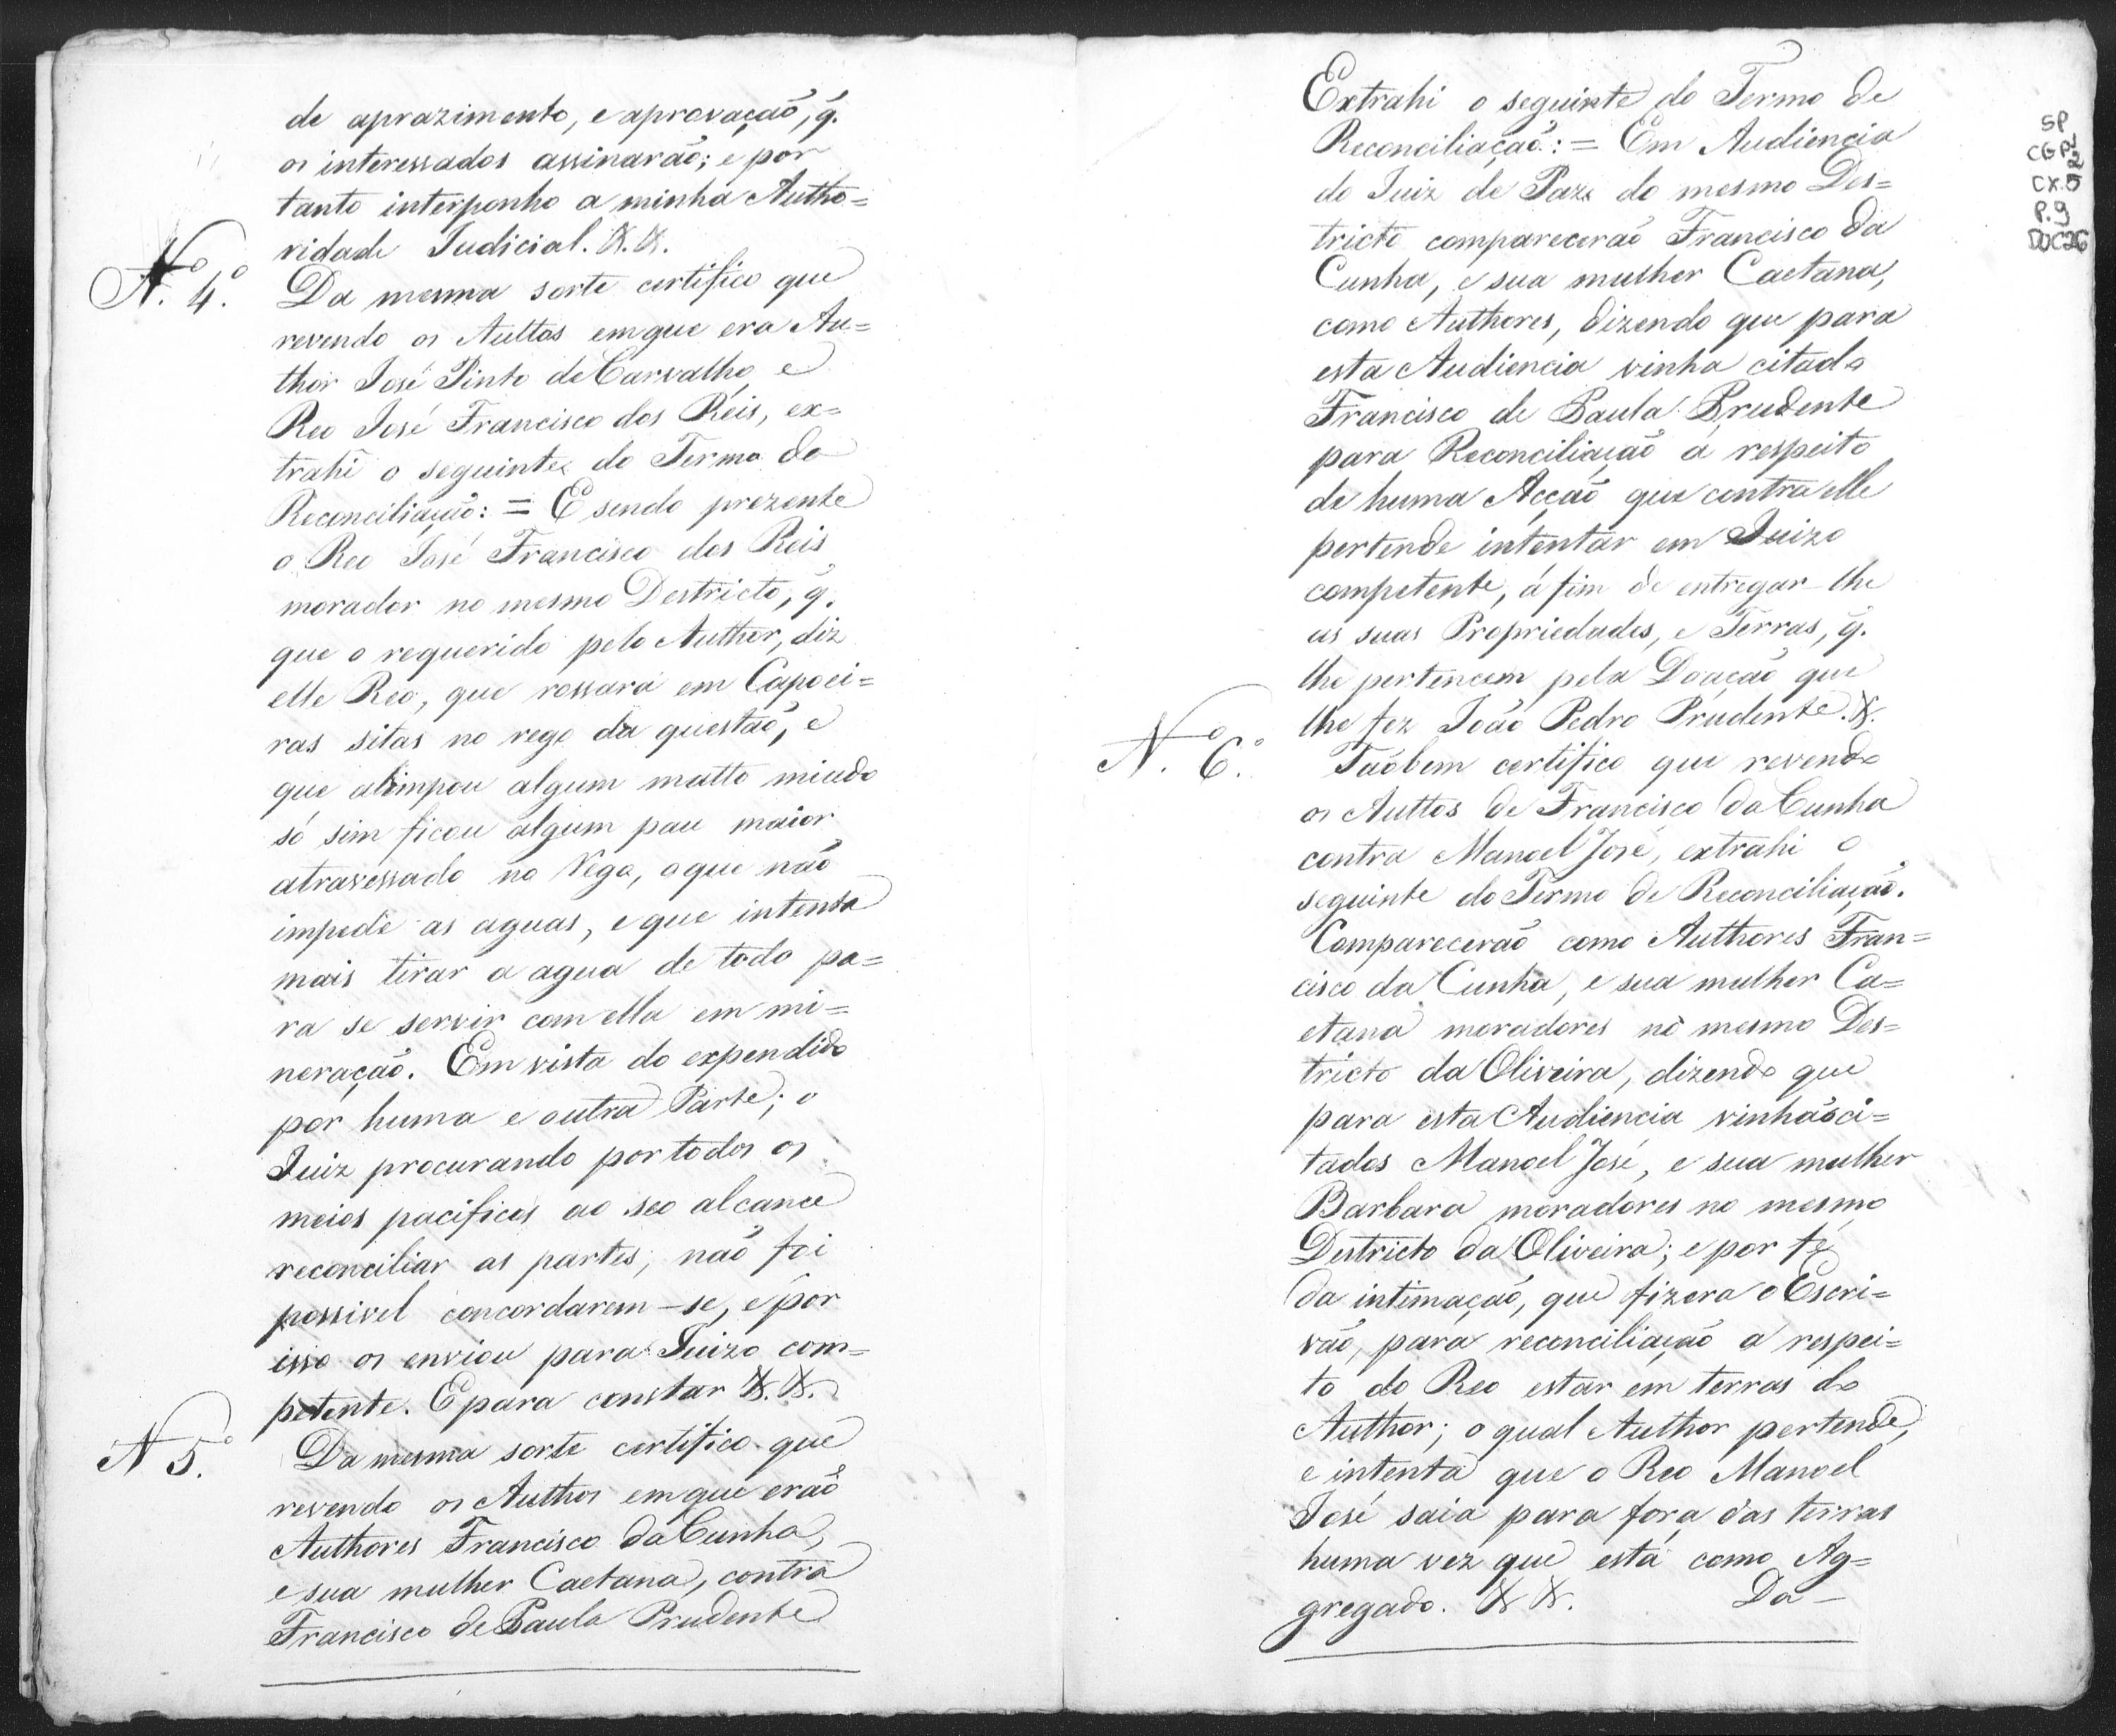 de aprazimento, e aprovação, q̃.
os interessados assinarão; e por
tanto interponho a minha Autho=
ridade Judicial. &. &.
N.º 4.º
Da mesma sorte certifico que
revendo os Auttos em que era Au=
thor José Pinto de Carvalho, e
Reo José Francisco dos Reis, ex=
trahi o seguinte do Termo de
Reconciliação: = E sendo prezente
o Reo José Francisco dos Reis
morador no mesmo Destricto, q̃.
que o requerido pelo Author, diz
elle Reo, que rossara em Capoei=
ras sitas no rego da questão, e
que alimpou algum matto miudo
só sim ficou algum pau maior
atravessado no Rego, o que não
impede as aguas, e que intenta
mais tirar a agua de todo pa=
ra se servir com ella em mi=
neração. Em vista do expendido
por huma e outra Parte; o
Juiz procurando por todos os
meios pacificos ao seo alcance
reconciliar as partes, não foi
possivel concordarem-se, e por
isso os enviou para Juizo com=
petente. E para constar &. &.
N 5.º
Da mesma sorte certifico que
revendo os Authos em que erão
Authores Francisco da Cunha,
e sua mulher Caetana, contra
Francisco de Paula Prudente
Extrahi o seguinte do Termo de
Reconciliação: = Em Audiencia
do Juiz de Paz do mesmo Des=
tricto comparecerão Francisco da
Cunha, e sua mulher Caetana,
como Authores, dizendo que para
esta Audiencia vinha citado
Francisco de Paula Prudente
para Reconciliação á respeito
de huma Acção que contra elle
pertende intentar em Juizo
competente, á fim de entregar-lhe
as suas Propriedades, e Terras, q̃.
lhe pertencem pela Doação que
lhe fez João Pedro Prudente. &.
N.º 6.º
Taobem certifico que revendo
os Auttos de Francisco da Cunha
contra Manoel José, extrahi o
seguinte do Termo de Reconciliação.
Comparecerão como Authores Fran=
cisco da Cunha, e sua mulher Ca=
etana moradores no mesmo Des=
tricto da Oliveira, dizendo que
para esta Audiencia vinhão ci=
tados Manoel José, e sua mulher
Barbara moradores no mesmo
Destricto da Oliveira; e por fé
da intimação, que fizera o Escri=
vão, para reconciliação a respei=
to do Reo estar em terras do
Author; o qual Author pertende,
e intenta que o Reo Manoel
José saia para fora das terras
huma vez que está como Ag=
gregado. & &.
Da-
SP
CGP1
2
CX.5
P.9
DOC26